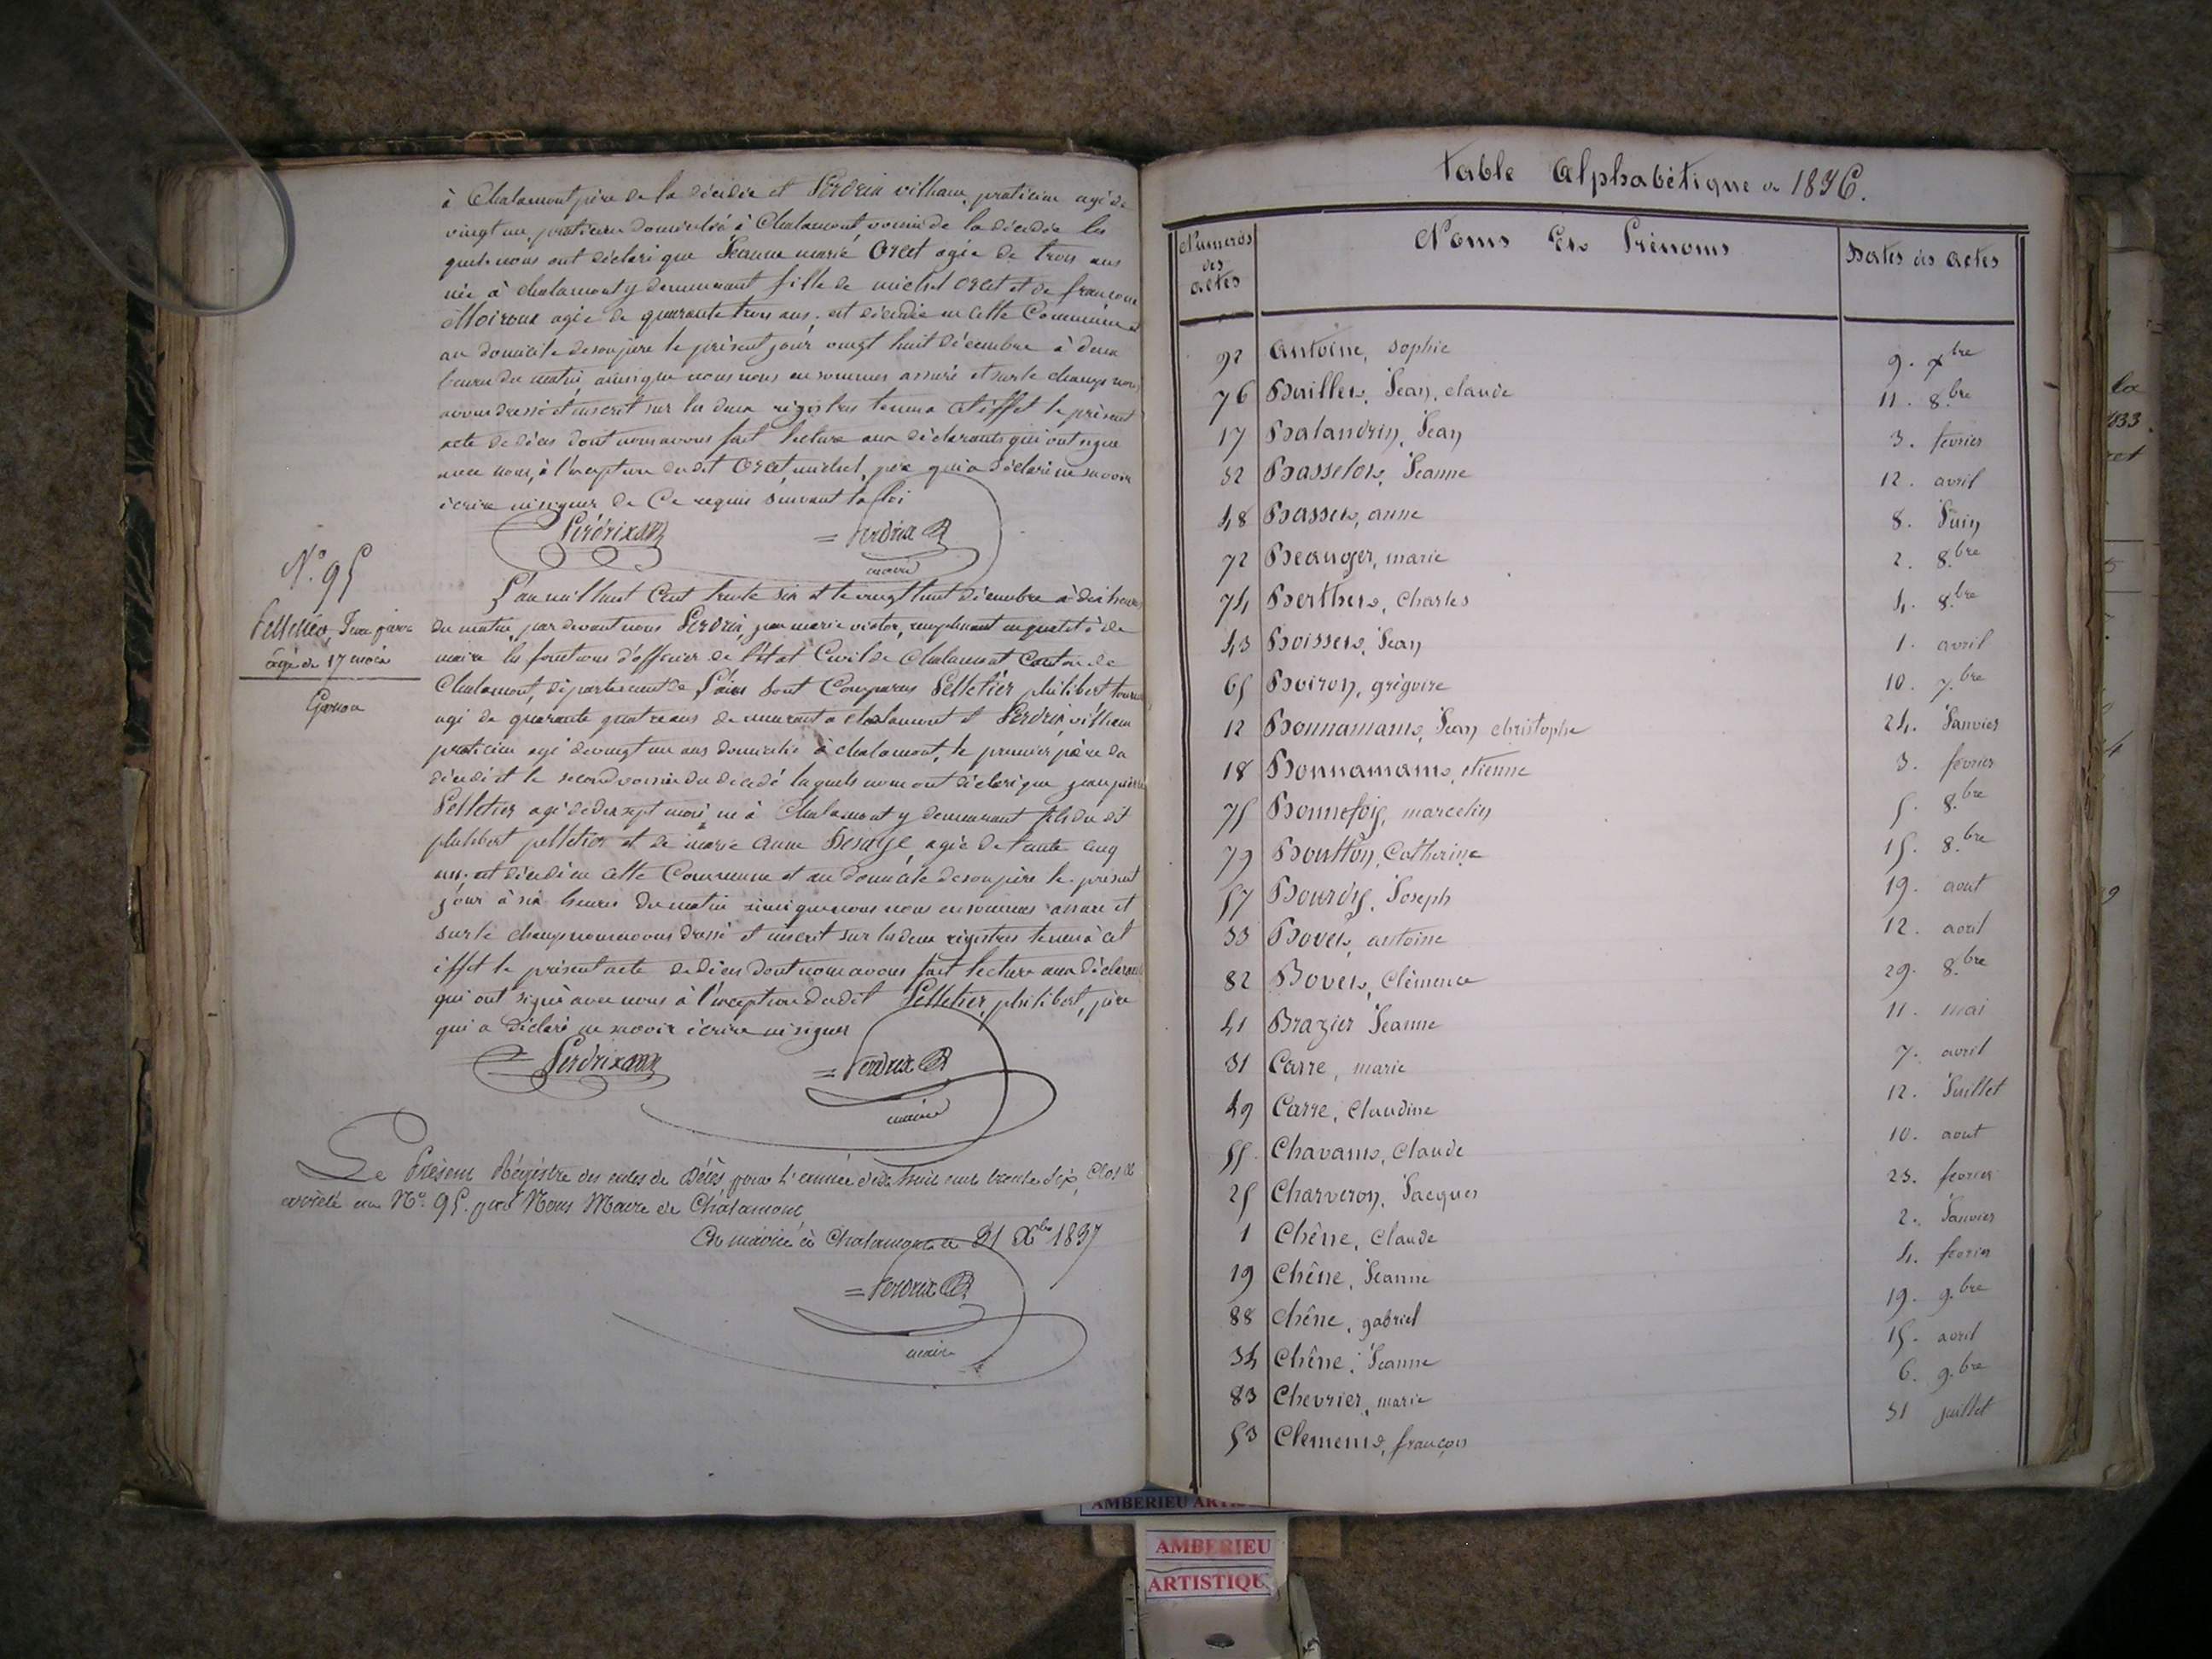 à Chalamont père de la décédée et Perdrix villiam, praticien agé de
vingt un, praticien domicilié à Chalamont voisin de la décédée les
quels nous ont déclaré que Jeanne marie Orcet agée de trois ans
née à chalamont y demeurant fille de michel Orcet et de francoise
Moiroux agée de quarante trois ans, est décédée en cette Commune et
au domicile de son père le présent jour vingt huit décembre à deux
heures du matin, ainsi que nous nous en sommes assuré et sur le champ nous
avons dressé et inscrit sur les deux régistres tenus à cet effet le présent
acte de décès dont nous avons fait lecture aux déclarants qui ont signé
avec nous, à l'exception du dit Orcet michel, père qui a déclaré ne savoir
écrire ni signer de Ce requis suivant la loi
Perdrix = Perdrix
maire
N.º 95
Pelletier, Jean pierre
âgé de 17 mois
Garçon
L'an mil huit Cent trente six et le vingt huit décembre à dix heures
du matin, par devant nous Perdrix, jean marie victor, remplissant en qualité de
maire les fonctions d'officier de l'état Civil de Chalamont Canton de
Chalamont, département de l'ain sont Comparus Pelletier philibert
agé de quarante quatre ans demeurant à chalamont et Perdrix, villiam
praticien agé de vingt un ans domicilié à chalamont, le premier père du
décédé et le second voisin du décédé lesquels nous ont déclaré que jean pierre
Pelletier agé de dix sept mois, né à Chalamont y demeurant fils du dit
philibert pelletier et de marie Anne agée de trente cinq
ans, est décédé en cette Commune et au domicile de son père le présent
jour à six heures du matin ainsi que nous nous en sommes assuré et
sur le champ nous avons dressé et inscrit sur les deux régistres tenus à cet
effet le présent acte de décès dont nous avons fait lecture aux déclarants
qui ont signé avec nous à l'exception du dit Pelletier, philibert, père
qui a déclaré ne savoir écrire ni signer
Perdrix = Perdrix
maire
Le Présent Régistre des actes de Décès pour l'année dix huit cent trente six, Clos et
arrêté au Nº 95. par Nous Maire de Chalamont
En mairie à Chalamont le 31 Xbre 1837
= Perdrix
maire
Table Alphabétique de 1836.
Numéros des actes Noms Et Prénoms Dates des actes
92 Antoine, Sophie 9. Xbre
76 Baillet, Jean, claude 11. 8.bre
17 Balandrin, Jean 3. février
32 Basselot, Jeanne 12. avril
48 Basset, anne 8. Juin
72 Beauger, marie 2. 8.bre
74 Berthet, Charles 4. 8.bre
43 Boisset, Jean 1. avril
65 Boiron, grégoire 10. 7.bre
12 Bonnamant, Jean christophe 24. Janvier
18 Bonnamant, etienne 3. février
75 Bonnefoy, marcelin 5. 8.bre
79 Boutton, Catherine 15. 8.bre
57 Bourdy, Joseph 19. aout
33 Bovet, antoine 12. avril
82 Bovet, Clémence 29. 8.bre
41 Brazier Jeanne 11. mai
31 Carre, marie 7. avril
49 Carre, Claudine 12. Juillet
55 Chavant, Claude 10. aout
25 Charveron, Jacques 23. fevrier
1 Chêne, Claude 2. Janvier
19 Chêne, Jeanne 4. fevrier
88 Chêne, gabriel 19. 9.bre
34 Chêne, Jeanne 15. avril
83 Chevrier, marie 6. 9.bre
53 Clement, françois 31 juillet
la
1833.
AMBERIEU
AMBERIEU
ARTISTIQU